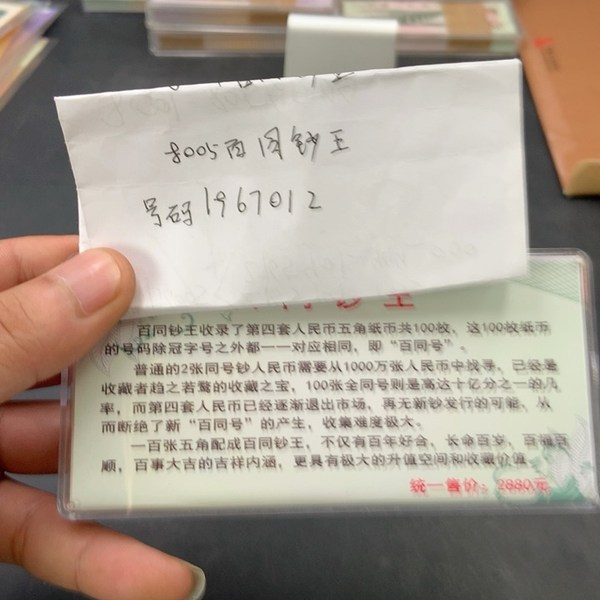 8005百同钞王
号码1967012
同钞王
百同钞王收录了第四套人民币五角纸币共100枚，这100枚纸币
的号码除冠字号之外都一一对应相同，即“百同号”。
普通的2张同号钞人民币需要从1000万张人民币中找寻，已经是
收藏者趋之若鹜的收藏之宝，100张全同号则是高达十亿分之一的几
率，而第四套人民币已经逐渐退出市场，再无新钞发行的可能，从
而断绝了新“百同号”的产生，收集难度极大。
一百张五角配成百同钞王，不仅有百年好合，长命百岁，百福百
顺，百事大吉的吉祥内涵，更具有极大的升值空间和收藏价值。
统一售价：2880元